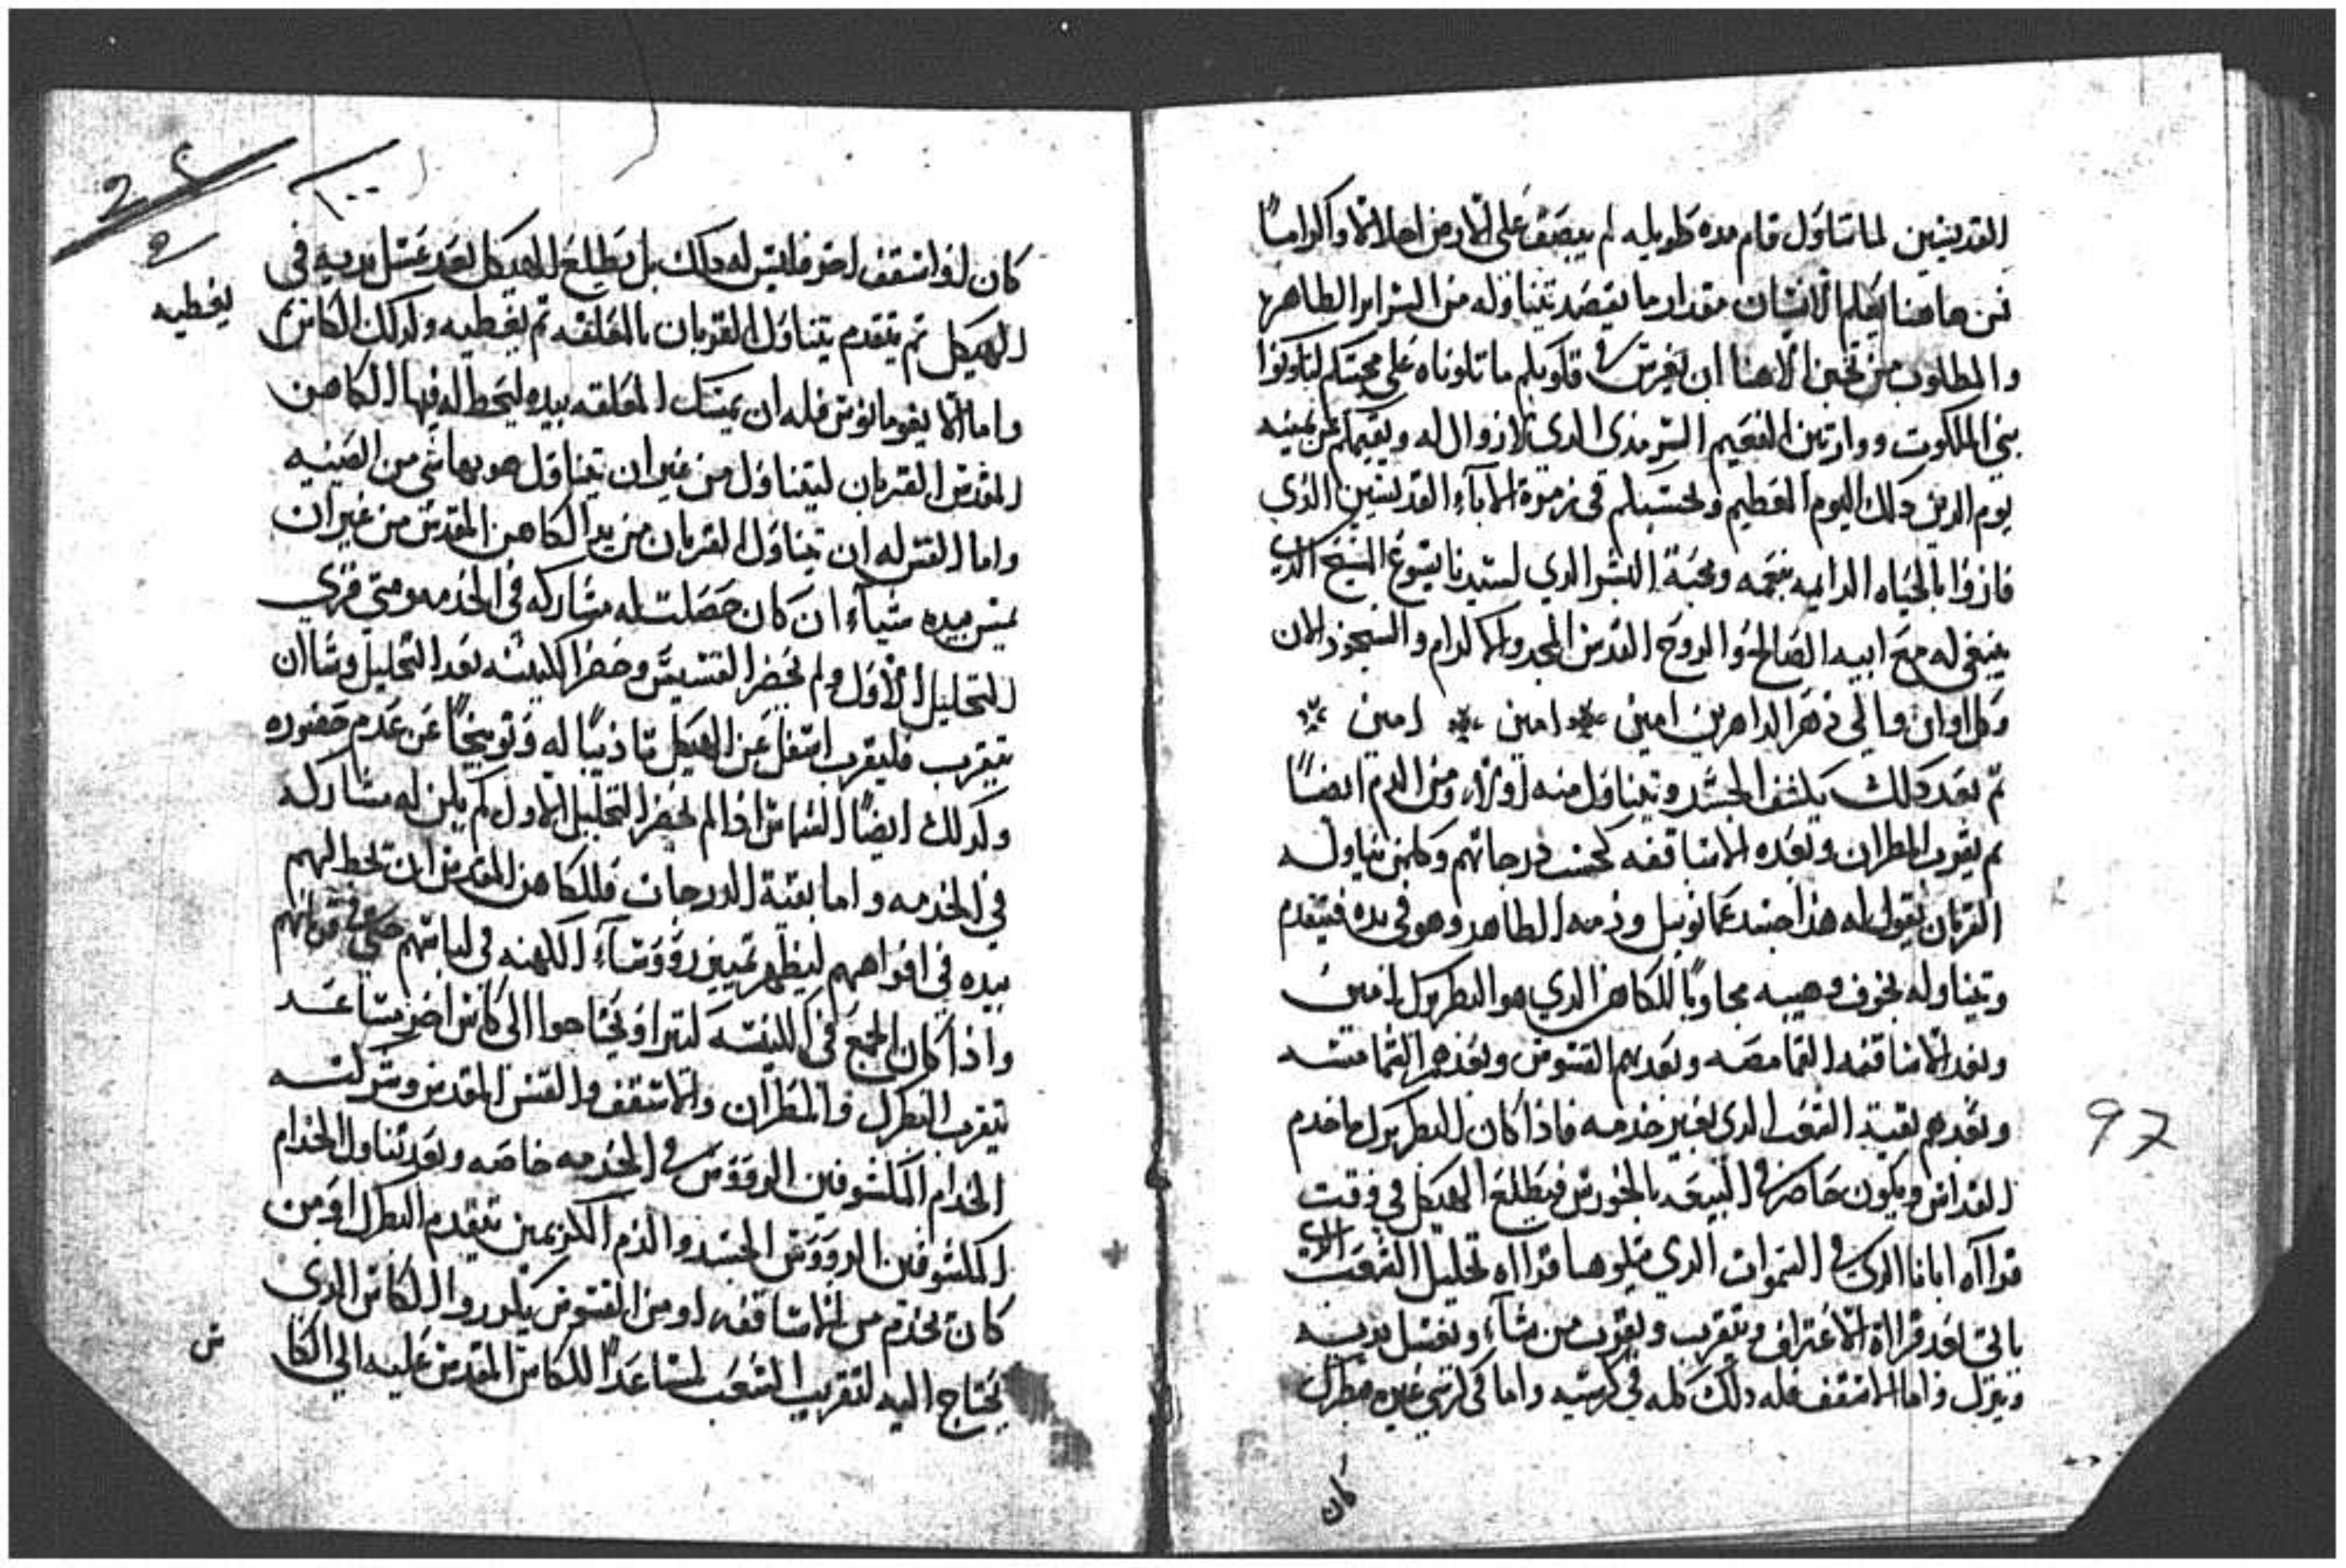 القديسين لما تناول قام مده طويله لم يبصق على الارض اجلالا واكراما
فمن هاهنا يعلم الانسان مقدار ما يقصد تناوله من السراير الطاهره
والمطلوب من تحنن الاهنا ان يغرس في قلوبكم ما تلوناه على محبتكم لتكونوا
بني الملكوت ووارثين النعيم السرمدى الدى لا زوال له ويقيمكم عن يمينه
يوم الدين دلك اليوم العظيم ويحسبكم فى زمرة الاباء القديسين الذي
فازوا بالحياه الدايمه بنعمه ومحبة البشر الدي لسيدنا يسوع المسيح الدي
ينبغى له مع ابيه الصالح والروح القدس المجد والاكرام والسجود الان
وكل اوان والي دهر الداهرين امين امين امين
ثم بعد دلك يكشف الجسد ويتناول منه اولا ومن الدم ايضًا
ثم يقرب المطران وبعده الاساقفه كحسب درجاتهم وكلمن يناوله
القربان يقول له هذا جسد عمانوييل ودمه الطاهر وهو فى يده فيتقدم
ويتناوله بخوف وهيبه مجاوبًا للكاهن الدي هو البطريرك امين
وبعد الاساقفه القمامصه وبعدهم القسوس وبعدهم الشمامسه
وبعدهم بقية الشعب الدى بغير خدمه فاذا كان البطريرك ما خدم
القداس ويكون حاضر في البيعه بالخورس فيطلع الهيكل في وقت
قراآه ابانا الدى في السموات الدي يتلوها قراآه تحليل الشعب الدي
ياتى بعد قراآة الاعتراف ويتقرب ويقرب من شاء ويغسل يديه
وينزل واما الاسقف فله دلك كله في كرسيه واما فى كرسي غيره مطران
كان
97
كان او اسقف اخر فليس له داك بل يطلع الهيكل بعد غسل يديه في
الهيكل ثم يتقدم يتناول القربان بالملعقه ثم يغطيه وكدلك الكاس
يغطيه
واما الايغومانوس فله ان يمسك الملعقه بيده ليحط له فيها الكاهن
المقدس القربان ليتناول من غير ان يتناول هو بها شي من الصينيه
واما القس له ان يتناول القربان من يد الكاهن المقدس من غير ان
يمس بيده شياء ان كان حصلت له مشاركه في الخدمه ومتى قري
التحليل الاول ولم يحضر القسيس وحضر الكنيسه بعد التحليل وشا ان
يتقرب فليقرب اسفل عن الهيكل تاديبًا له وتوبيخًا عن عدم حضوره
وكدلك ايضًا الشماس اذا لم يحضر التحليل الاول لم يكن له مشاركه
في الخدمه واما بقية الدرجات فللكاهن المقدس ان يحط لهم
بيده في افواههم ليظهر تمييز رووساء الكهنه في
واذا كان الجمع في الكنيسه كتير او يحتاجوا الى كاس اخر مساعد
يتقرب البطرك والمطران والاسقف والقس المقدس وشركته
الخدام المكشوفين الرووس في الخدمه خاصه وبعد تناول الخدام
المكشوفين الرووس الجسد والدم الكريمين يتقدم البطرك او من
كان يخدم من الاساقفه او من القسوس الكاس الدى
يحتاج اليه لتقريب الشعب لمساعدًا للكاس المقدس عليه الي الكا
س